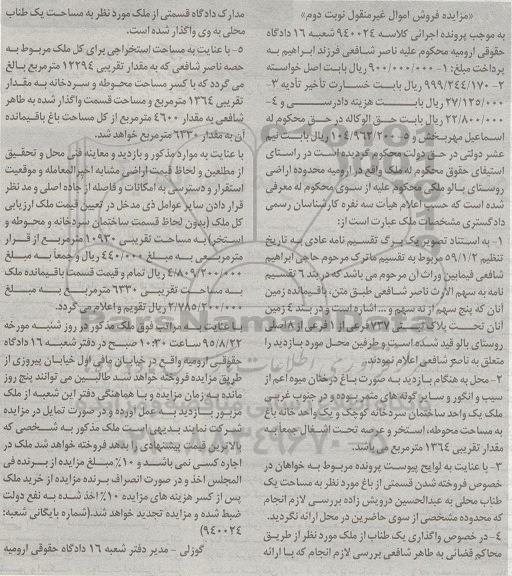 «مزایده فروش اموال غیرمنقول نوبت دوم»
به موجب پرونده اجرائی کلاسه ۹۴۰۰۲۴ شعبه ۱۶ دادگاه
حقوقی ارومیه محکوم علیه ناصر شافعی فرزند ابراهیم به
پرداخت مبلغ: ۱- ۹۰۰/۰۰۰/۰۰۰ ریال بابت اصل خواسته
۲- ۹۹۹/۲۴۴/۱۷۰ ریال بابت خسارت تأخیر تأدیه ۳-
۲۷/۱۲۵/۰۰۰ ریال بابت هزینه دادرسی و ۴-
۲۲/۸۰۰/۰۰۰ ریال بابت حق الوکاله در حق محکوم له
اسماعیل مهربخش و ۵- ۱۰۴/۹۶۲/۲۰۰ ریال بابت نیم
عشر دولتی در حق دولت محکوم گردیده است در راستای
استیفای حقوق محکوم له ملک واقع در ارومیه محدوده اراضی
روستای بالو ملک محکوم علیه از سوی محکوم له معرفی
شده است که حسب اعلام هیأت سه نفره کارشناسان رسمی
دادگستری مشخصات ملک عبارت است از:
۱- به استناد تصویر یک برگ تقسیم نامه عادی به تاریخ
تنظیم ۵۹/۱/۲ مربوط به تقسیم ماترک مرحوم حاجی ابراهیم
شافعی فیمابین وراث آن مرحوم می باشد که در بند ۶ تقسیم
نامه به سهم الارث ناصر شافعی طبق متن، باقیمانده زمین
آنان که پنج سهم از نه سهم و ... اشاره است و در بند ۴ زمین
آنان تحت پلاک ثبتی ۷۳۷ فرعی از ۱ فرعی از ۸ اصلی
روستای بالو قید شده است و طرفین محل مورد بازدید را
متعلق به ناصر شافعی اعلام نمودند.
۲- محل به هنگام بازدید به صورت باغ درختان میوه اعم از
سیب و انگور و سایر گونه های مثمر بوده و در جنوب غربی
ملک یک واحد ساختمان سردخانه کوچک و یک واحد خانه باغ
به مساحت محوطه، استخر و عرصه تحت اشغال جمعا به
مقدار تقریبی ۱۳۶۴ متر مربع می باشد.
۳- با عنایت به لوایح پیوست پرونده مربوط به خواهان در
خصوص فروخته شدن قسمتی از باغ مورد نظر به مساحت یک
طناب محلی به عبدالحسین درویش زاده بررسی لازم انجام
که محدوده مشخصی از سوی حاضرین در محل ارائه نگردید.
۴- در خصوص واگذاری یک طناب از ملک مورد نظر از طریق
محاکم قضائی به طاهر شافعی بررسی لازم انجام که با ارائه
مدارک دادگاه قسمتی از ملک مورد نظر به مساحت یک طناب
محلی به وی واگذار شده است.
۵- با عنایت به مساحت استخراجی برای کل ملک مربوط به
حصه ناصر شافعی که به مقدار تقریبی ۱۲۲۹۴ مترمربع بالغ
می گردد که با کسر مساحت محوطه و سردخانه به مقدار
تقریبی ۱۳۶۴ مترمربع و مساحت قسمت واگذار شده به طاهر
شافعی به مقدار ۴۶۰۰ متر مربع از کل مساحت باغ باقیمانده
آن به مقدار ۶۳۳۰ مترمربع خواهد شد.
با عنایت به موارد مذکور و بازدید و معاینه فنی محل و تحقیق
از مطلعین و لحاظ قیمت اراضی مشابه اخیرالمعامله و موقعیت
استقرار و دسترسی به امکانات و فاصله از جاده اصلی و مد نظر
قرار دادن سایر عوامل ذی مدخل در تعیین قیمت ملک ارزیابی
کل ملک (بدون لحاظ قسمت ساختمان سردخانه و محوطه و
استخر) به مساحت تقریبی ۱۰۹۳۰ مترمربع از قرار
مترمربعی به مبلغ ۴۴۰/۰۰۰ ریال و جمعا به مبلغ
۴/۸۰۹/۲۰۰/۰۰۰ ریال تمام و قیمت قسمت باقیمانده ملک
به مساحت تقریبی ۶۳۳۰ مترمربع به مبلغ
۲/۷۸۵/۲۰۰/۰۰۰ ریال تقویم و اعلام می گردد.
با عنایت به مراتب فوق ملک مذکور در روز شنبه مورخه
۹۵/۸/۲۲ ساعت ۱۰:۳۰ صبح در دفتر شعبه ۱۶ دادگاه
حقوقی ارومیه واقع در خیابان مافی اول خیابان پیروزی از
طریق مزایده فروخته خواهد شد طالبین می توانند پنج روز
مانده به زمان مزایده و با هماهنگی دفتر این شعبه از ملک
مزبور بازدید به عمل آورده و در صورت تمایل در مزایده
شرکت نمایند بدیهی است ملک مذکور به شخصی که
بالاترین قیمت پیشنهادی را بدهد فروخته خواهد شد ملک در
اجاره کسی نمی باشد و ۱۰٪ مبلغ مزایده از برنده فی
المجلس اخذ و در صورت انصراف برنده مزایده از خرید ملک
پس از کسر هزینه های مزایده ۱۰٪ اخذ شده به نفع دولت
ضبط شده و مزایده تجدید خواهد شد. (شماره بایگانی شعبه:
۹۴۰۰۲۴)
گوزلی - مدیر دفتر شعبه ۱۶ دادگاه حقوقی ارومیه